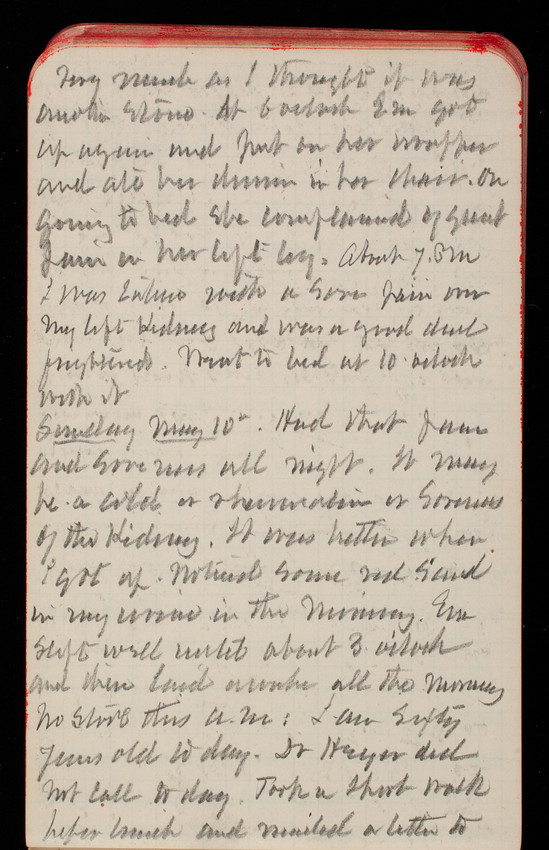 very much as I thought it was
another stone. At 6 oclock Em got
up again and put on her wrapper
and ate her dinner in her chair. On
going to bed she complained of great
pain in her left leg. About 7. P.M
I was taken with a sore pain over
my left kidney and was a good deal
frightened. Went to bed at 10 oclock
with it
Sunday May 10". Had that pain
and soreness all night. It may
be a cold or rheumatism or soreness
of the kidney. It was better when
I got up. Noticed some red sand
in my urine in the morning. Em
slept well until about 3 oclock
and then laid awake all the morning
No stool this a.m: I am sixty
years old to day. Dr did
not call to day. Took a short walk
before lunch and mailed a letter to